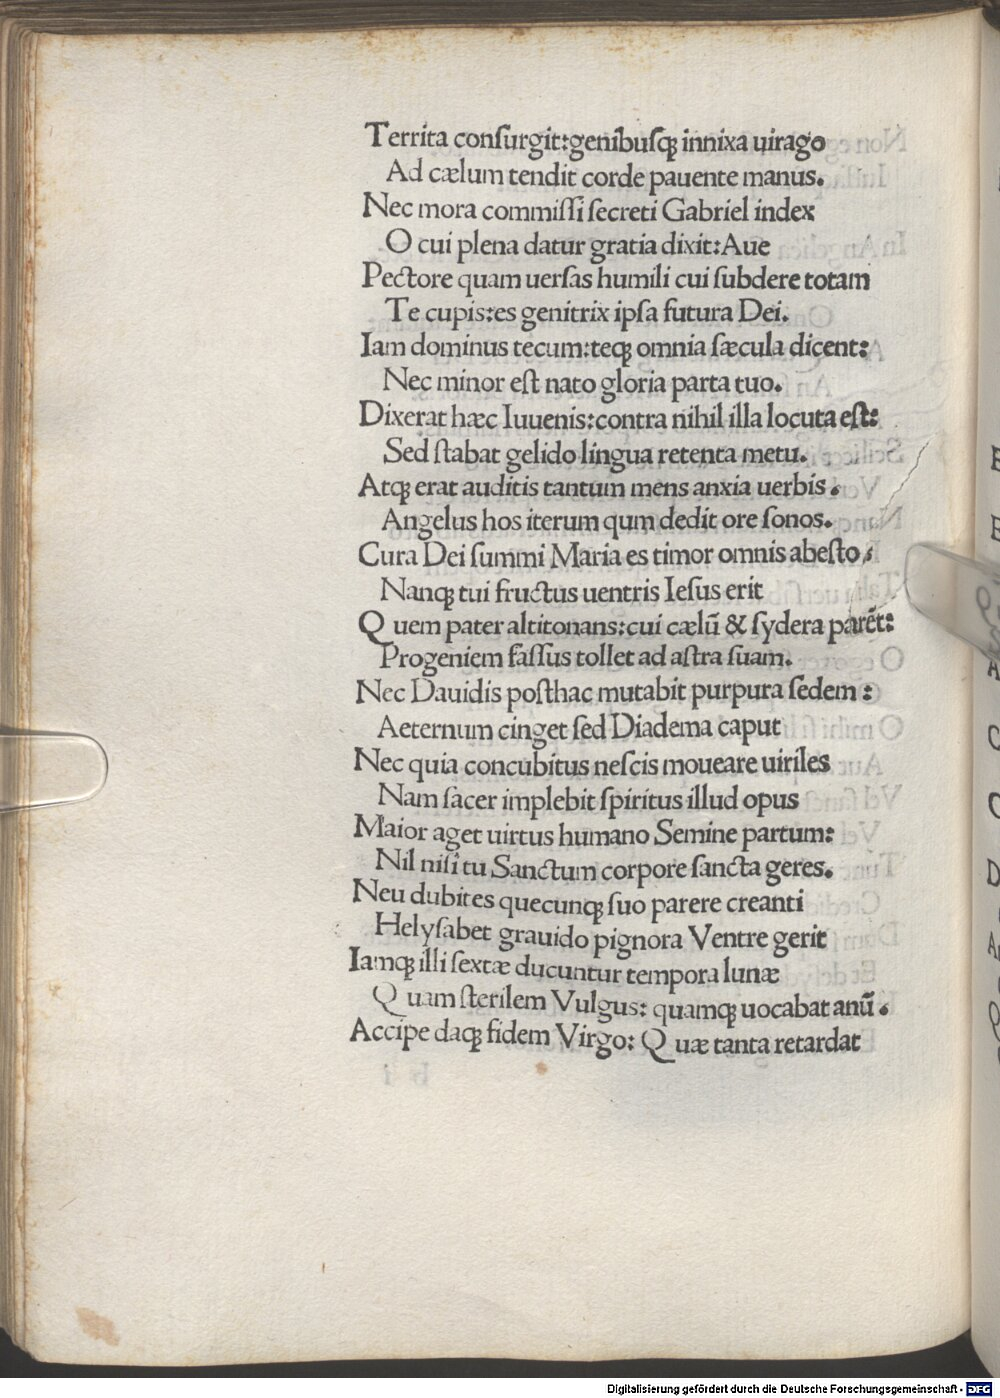 Territa conſurgit:genibuſqꝫ innixa uirago
Ad cælum tendit corde pauente manus.
Nec mora commiſſi ſecreti Gabriel index
O cui plena datur gratia dixit:Aue
Pectore quam uerſas humili cui ſubdere totam
Te cupis:es genitrix ipſa futura Dei.
Iam dominus tecum:teqꝫ omnia ſæcula dicent:
Nec minor eſt nato gloria parta tuo.
Dixerat hæc Iuuenis:contra nihil illa locuta eſt:
Sed ſtabat gelido lingua retenta metu.
Atqꝫ erat auditis tantum mens anxia uerbis.
Angelus hos iterum qum dedit ore ſonos.
Cura Dei ſummi Maria es timor omnis abeſto:
Nanqꝫ tui fructus uentris Ieſus erit
Quem pater altitonans:cui cælū & ſydera parēt:
Progeniem faſſus tollet ad aſtra ſuam.
Nec Dauidis poſthac mutabit purpura ſedem:
Aeternum cinget ſed Diadema caput
Nec quia concubitus neſcis moueare uiriles
Nam ſacer implebit ſpiritus illud opus
Maior aget uirtus humano Semine partum:
Nil niſi tu Sanctum corpore ſancta geres.
Neu dubites quecunqꝫ ſuo parere creanti
Helyſabet grauido pignora Ventre gerit
Iamqꝫ illi ſextæ ducuntur tempora lunæ
Quam ſterilem Vulgus: quamqꝫ uocabat anū.
Accipe daqꝫ fidem Virgo: Quæ tanta retardat
Digitalisierung gefördert durch die Deutsche Forschungsgemeinschaft - DFG